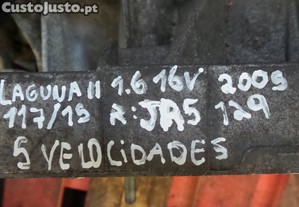 CustoJusto.pt
LAGUNA II 1.6 16V 2009
117/19 R:JR5 129
5 VELOCIDADES